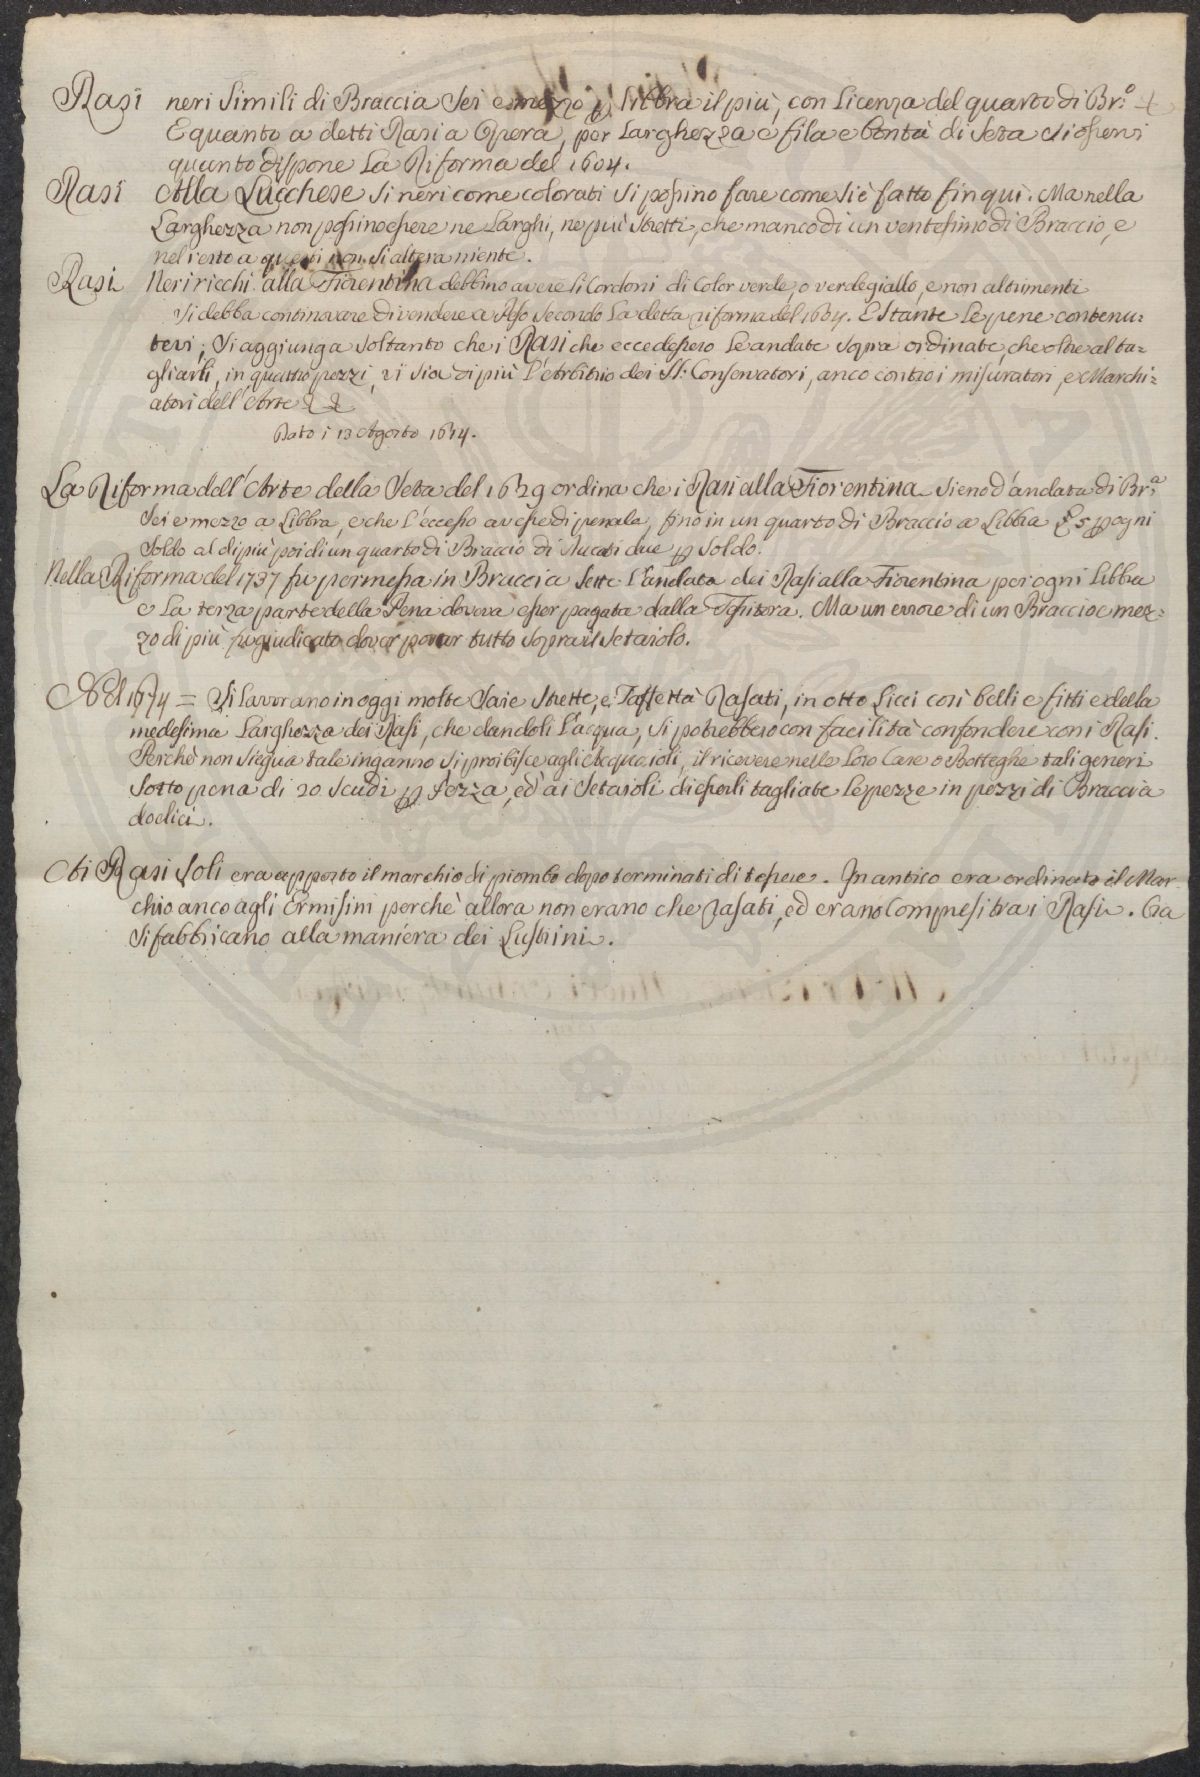 Rasi neri simili di Braccia sei e mezzo p libbra il più, con licenza del quarto di Br.o
E quanto a detti Rasi a Opera, per larghezza e fila e bontà di seta si osservi
quanto dispone la Riforma del 1604.
Rasi Alla Lucchese si neri come colorati si possino fare come si è fatto fin qui. Ma nella
larghezza non possino essere ne larghi, ne più stretti, che manco di un ventesimo di Braccio, e
nel resto a questi non si altera niente.
Rasi Neri ricchi alla Fiorentina debbino avere li Cordoni di Color verde, o verdegiallo, e non altrimenti
Si debba continovare di vendere a Peso secondo la detta riforma del 1604. E stante le pene contenu=
tevi; si aggiunga soltanto che i Rasi che eccedessero le andate sopra ordinate, che oltre al ta=
gliarli, in quattro pezzi, vi sia di più l'Arbitrio dei SS: Conservatori, anco contro i misuratori, e Marchi=
atori dell'Arte
Dato i 13 Agosto 1614.
La Riforma dell'Arte della Seta del 1629 ordina che i Rasi alla Fiorentina sieno d'andata di Br.a
sei e mezzo a Libbra, e che l'eccesso avesse di penale, fino in un quarto di Braccio a Libbra £ 5 p ogni
soldo al di più poi di un quarto di Braccio di Ducati due p soldo.
Nella Riforma del 1737 fu permessa in Braccia sette l'andata dei Rasi alla Fiorentina per ogni libbra
e la terza parte della Pena doveva esser pagata dalla Tessitora. Ma un errore di un Braccio e mez=
zo di più fu giudicato dover posar tutto sopra il Setaiolo.
Nel 1674 = Si lavorano in oggi molte Saie strette, e Taffettà Rasati, in otto Licci così belli e fitti e della
medesima larghezza dei Rasi, che dandoli l'acqua, si potrebbero con facilità confondere con i Rasi.
Perchè non siegua tale inganno si proibisce agli Acquaioli, il ricevere nelle loro Case o Botteghe tali generi
sotto pena di 20 scudi p Pezza, ed ai Setaioli di esserli tagliate le pezze in pezzi di Braccia
dodici.
Ai Rasi soli era apposto il marchio di piombo dopo terminati di tessere. In antico era ordinato il Mar
chio anco agli Ermisini perchè allora non erano che rasati, ed erano Compresi tra i Rasi. Ora
si fabbricano alla maniera dei Lustrini.